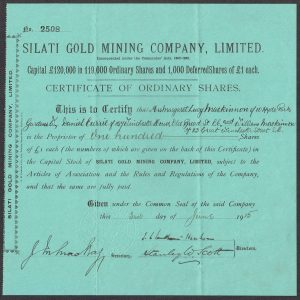 No. 2508
SILATI GOLD MINING COMPANY, LIMITED.
Incorporated under the Companies' Acts,
Capital £120,000 in 119,000 Ordinary Shares and 1,000 Deferred Shares of £1 each.
CERTIFICATE OF ORDINARY SHARES.
This is to Certify that Margaret Lucy Mackinnon of 10 Hyde Park
Gardens Daniel Currie of Winchester House Old Broad St E.C. and William Mackinnon
is the Proprietor of One hundred of 23 Great Winchester Street E.C. Shares
of £1 each (the numbers of which are given on the back of this Certificate) in the
Capital Stock of SILATI GOLD MINING COMPANY, LIMITED, subject to the
Articles of Association and the Rules and Regulations of the Company,
and that the same are fully paid.
Given under the Common Seal of the said Company
this day of June
Secretary.
Stanley D. Scott
Directors.
SILATI GOLD MINING COMPANY, LIMITED.